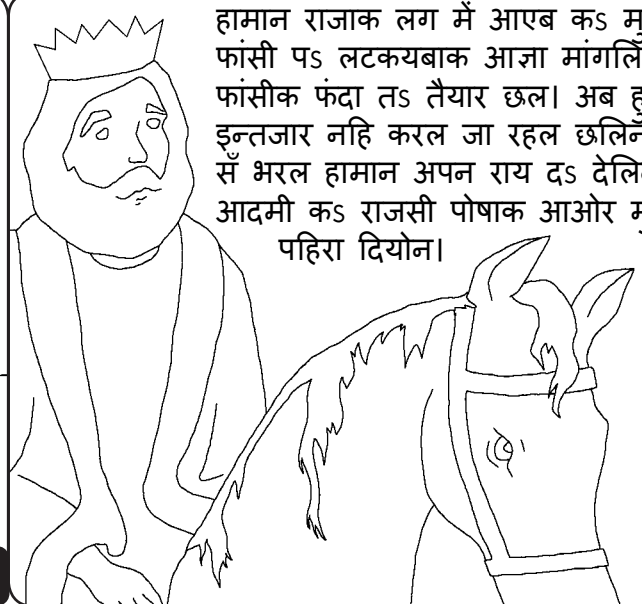 हामान राजाक लग में आएब कऽ
फांसी पऽ लटकयबाक आज्ञा
फांसीक फंदा तऽ तैयार छल। अब
इन्तजार नहि करल जा रहल
सँ भरल हामान अपन राय दऽ
आदमी कऽ राजसी पोषाक आओर
पहिरा दियोन।